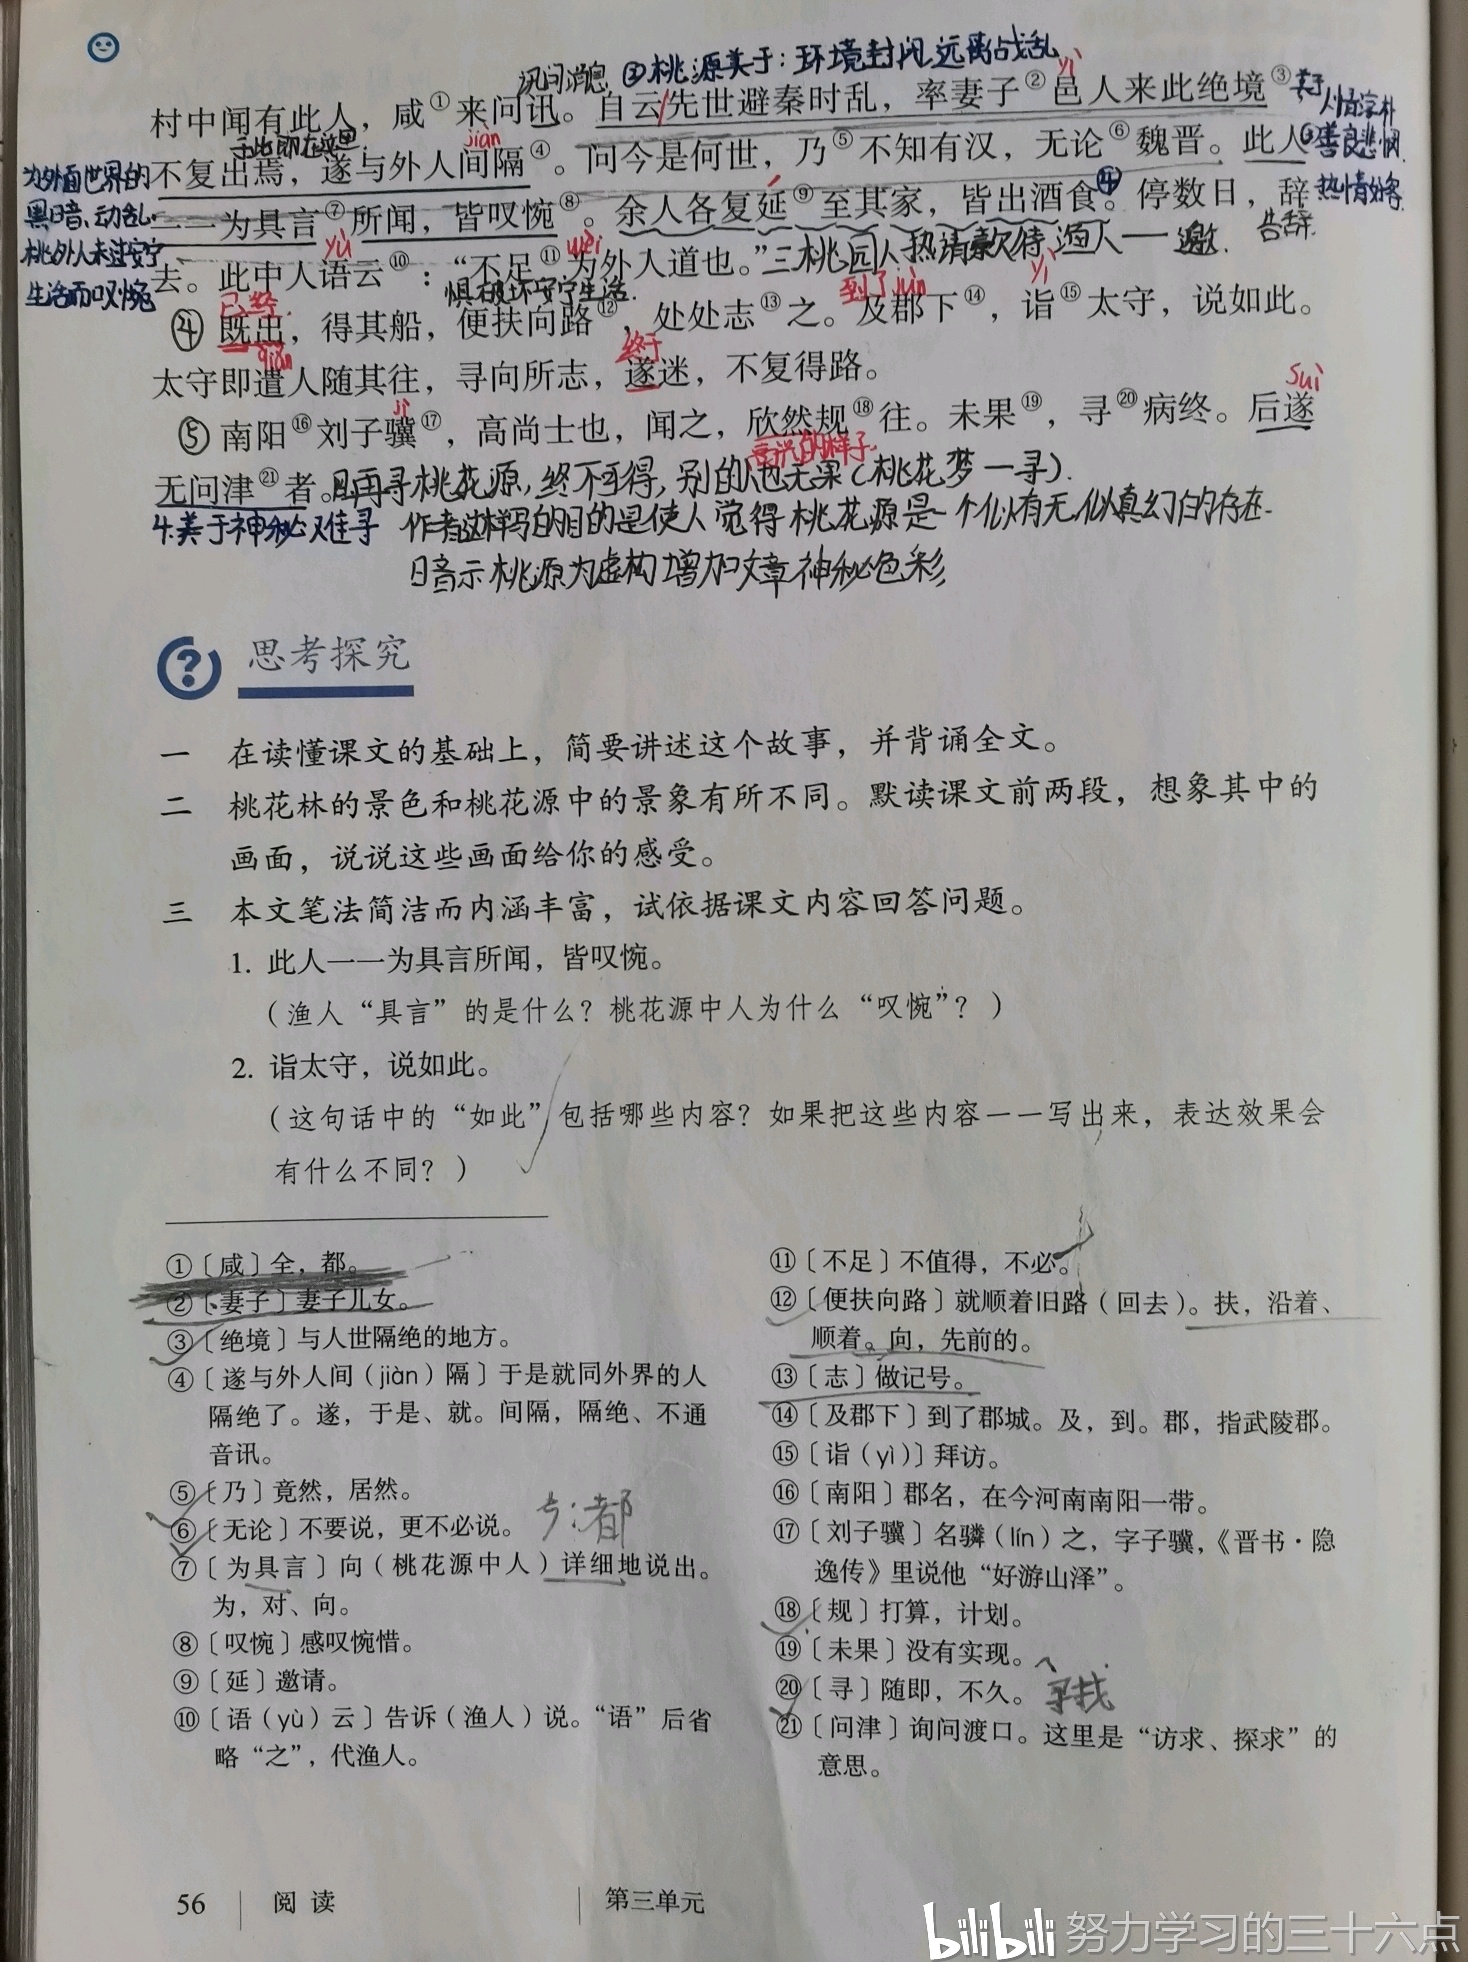 讯问消息 ③桃源美于：环境封闭远离战乱
村中闻有此人，咸①来问讯。自云先世避秦时乱，率妻子②邑人来此绝境③
yì
美于
人情淳朴
于此 即在这里
jiàn
不复出焉，遂与外人间隔④。问今是何世，乃⑤不知有汉，无论⑥魏晋。此人
善良
为外面世界的
黑暗、动乱.
桃外人未过安宁
生活而叹惋
一一为具言⑦所闻，皆叹惋⑧。余人各复延⑨至其家，皆出酒食。停数日，辞
热情好客
告辞.
yù
wèi
三桃园人热请款待渔人一一邀.
去。此中人语云⑩：“不足⑪为外人道也。”
惧破坏安宁生活.
已经.
到了 jùn
yì
④ 既出，得其船，便扶向路⑫，处处志⑬之。及郡下⑭，诣⑮太守，说如此。
qiǎn
终于
太守即遣人随其往，寻向所志，遂迷，不复得路。
jì
suì
⑤ 南阳⑯刘子骥⑰，高尚士也，闻之，欣然规⑱往。未果⑲，寻⑳病终。后遂
高兴的样子.
无问津㉑者。且再寻桃花源，终不可得，别的人也无果（桃花梦一寻）.
4.美于神秘难寻 作者这样写的目的是使人觉得桃花源是一个似有无似真幻的存在.
暗示桃源为虚构增加文章神秘色彩
思考探究
一 在读懂课文的基础上，简要讲述这个故事，并背诵全文。
二 桃花林的景色和桃花源中的景象有所不同。默读课文前两段，想象其中的
画面，说说这些画面给你的感受。
三 本文笔法简洁而内涵丰富，试依据课文内容回答问题。
1. 此人一一为具言所闻，皆叹惋。
（渔人“具言”的是什么？桃花源中人为什么“叹惋”？）
2. 诣太守，说如此。
（这句话中的“如此”包括哪些内容？如果把这些内容一一写出来，表达效果会
有什么不同？）
①〔咸〕全，都。
②〔妻子〕妻子儿女。
③〔绝境〕与人世隔绝的地方。
④〔遂与外人间（jiàn）隔〕于是就同外界的人
隔绝了。遂，于是、就。间隔，隔绝、不通
音讯。
⑤〔乃〕竟然，居然。
⑥〔无论〕不要说，更不必说。
⑦〔为具言〕向（桃花源中人）详细地说出。
为，对、向。
⑧〔叹惋〕感叹惋惜。
⑨〔延〕邀请。
⑩〔语（yù）云〕告诉（渔人）说。“语”后省
略“之”，代渔人。
⑪〔不足〕不值得，不必。
⑫〔便扶向路〕就顺着旧路（回去）。扶，沿着、
顺着。向，先前的。
⑬〔志〕做记号。
⑭〔及郡下〕到了郡城。及，到。郡，指武陵郡。
⑮〔诣（yì）〕拜访。
⑯〔南阳〕郡名，在今河南南阳一带。
⑰〔刘子骥〕名驎（lín）之，字子骥，《晋书·隐
逸传》里说他“好游山泽”。
⑱〔规〕打算，计划。
⑲〔未果〕没有实现。
⑳〔寻〕随即，不久。 寻找
㉑〔问津〕询问渡口。这里是“访求、探求”的
意思。
56 阅读 第三单元
bilibili 努力学习的三十六点